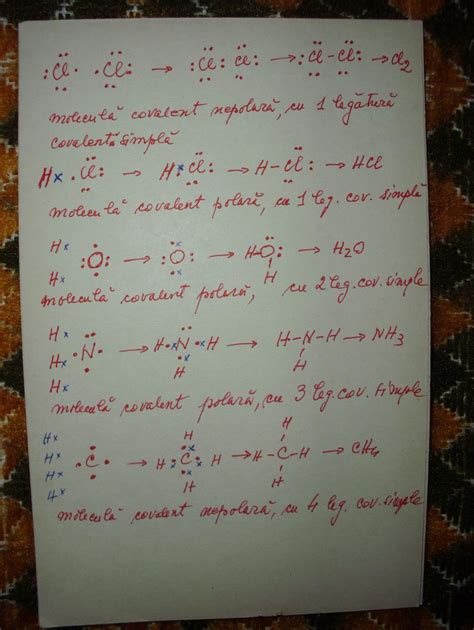 :Cl· ·Cl: → :Cl:Cl: → :Cl-Cl: → Cl2
moleculă covalent nepolară, cu 1 legătură
covalentă simplă
Hx ·Cl: → H×Cl: → H-Cl: → HCl
moleculă covalent polară, cu 1 leg. cov. simplă
Hx
·O· → ·O· → HO: → H2O
Hx H
moleculă covalent polară, cu 2 leg. cov. simple
Hx
Hx ·N· → H·N·H → H-N-H → NH3
Hx H H
moleculă covalent polară, cu 3 leg. cov. simple
Hx H H
Hx ·C· → H·C·H → H-C-H → CH4
Hx
Hx H H
moleculă covalent nepolară, cu 4 leg. cov. simple